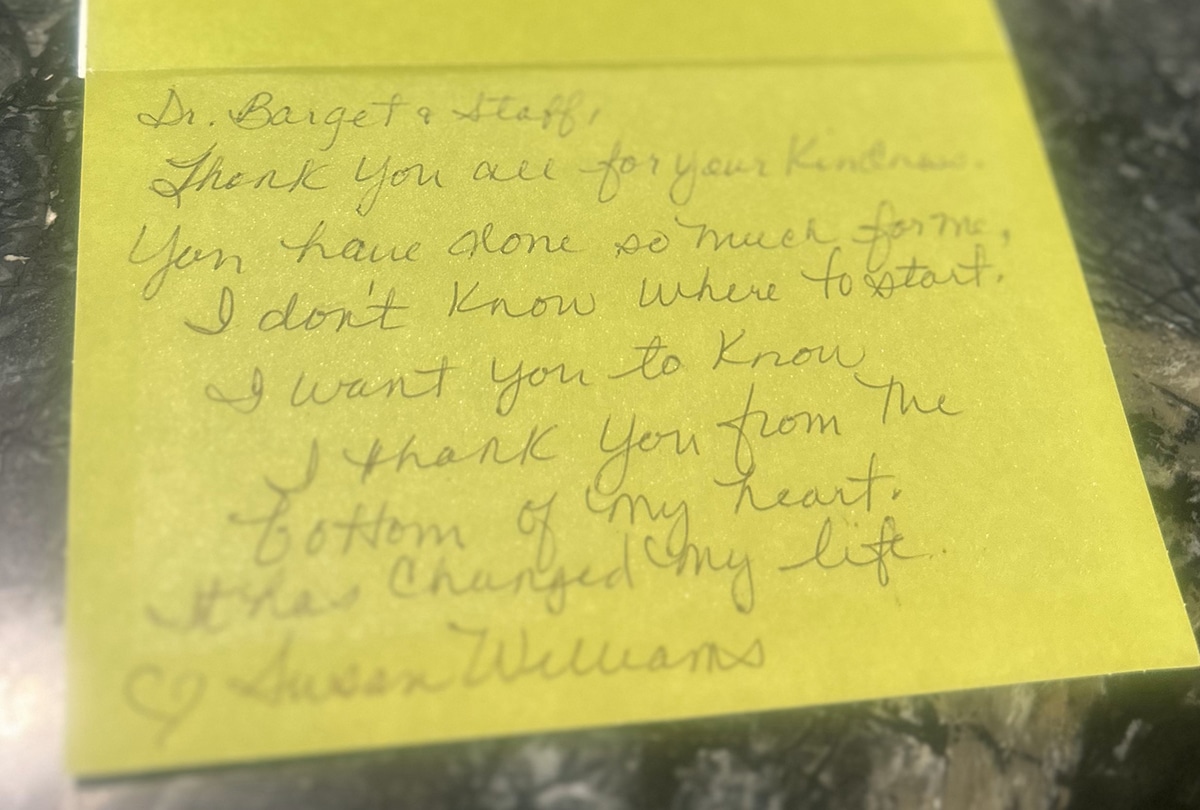 Dr. Barget & Staff,
Thank You all for your Kindness.
You have done so much for me,
I don't know where to start.
I want you to know
I thank you from the
bottom of my heart.
It has changed my life.
♡ Susan Williams